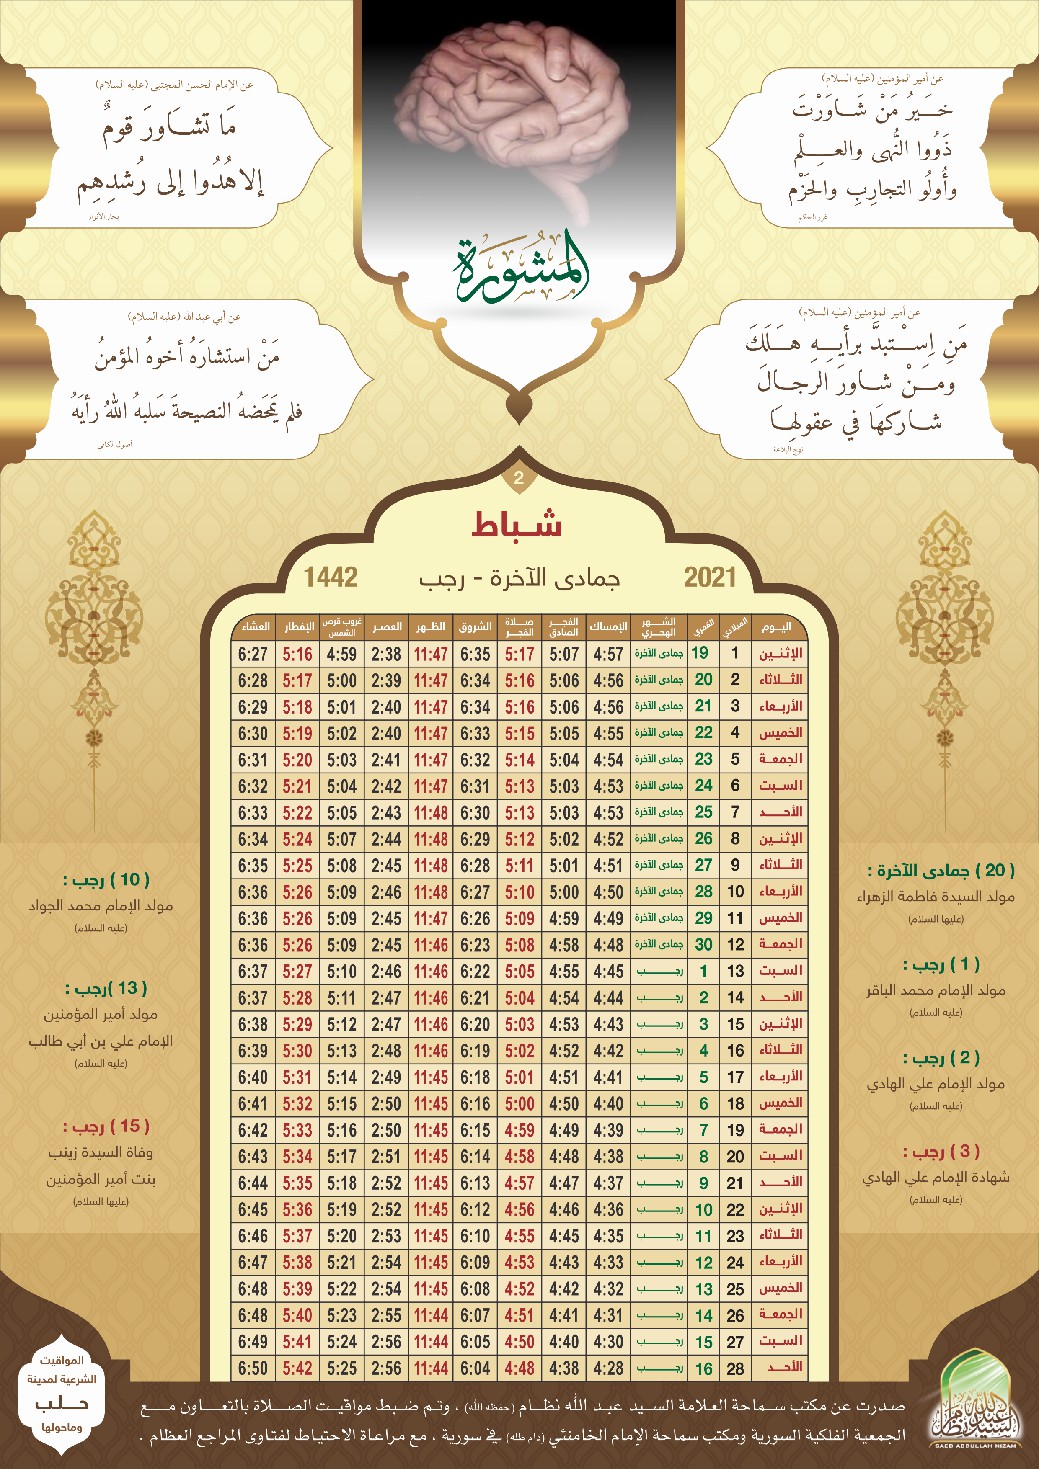 عن أمير المؤمنين (عليه السلام)
خَيرُ مَنْ شَاوَرْتَ
ذَوُوا النُّهى والعِلْم
وأُولُو التجاربِ والحَزْم
غرر الحكم
عن الإمام الحسن المجتبى (عليه السلام)
مَا تشَاورَ قومٌ
إلا هُدُوا إلى رُشدِهِم
بحار الأنوار
المشورة
عن أمير المؤمنين (عليه السلام)
مَنِ اِسْتبدَّ برأيهِ هَلَكَ
ومَنْ شاورَ الرجالَ
شاركهَا في عقولِهَا
نهج البلاغة
عن أبي عبد الله (عليه السلام)
مَنْ استشارَهُ أخوهُ المؤمنُ
فلم يَمحَضهُ النصيحةَ سَلبهُ اللهُ رأيَهُ
أصول الكافي
2
شباط
2021 جمادى الآخرة - رجب 1442
اليوم الميلادي القمري الشهر الهجري الإمساك الفجر الصادق صلاة الفجر الشروق الظهر العصر غروب قرص الشمس الإفطار العشاء
الإثنين 1 19 جمادى الآخرة 4:57 5:07 5:17 6:35 11:47 2:38 4:59 5:16 6:27
الثلاثاء 2 20 جمادى الآخرة 4:56 5:06 5:16 6:34 11:47 2:39 5:00 5:17 6:28
الأربعاء 3 21 جمادى الآخرة 4:56 5:06 5:16 6:34 11:47 2:40 5:01 5:18 6:29
الخميس 4 22 جمادى الآخرة 4:55 5:05 5:15 6:33 11:47 2:40 5:02 5:19 6:30
الجمعة 5 23 جمادى الآخرة 4:54 5:04 5:14 6:32 11:47 2:41 5:03 5:20 6:31
السبت 6 24 جمادى الآخرة 4:53 5:03 5:13 6:31 11:47 2:42 5:04 5:21 6:32
الأحد 7 25 جمادى الآخرة 4:53 5:03 5:13 6:30 11:48 2:43 5:05 5:22 6:33
الإثنين 8 26 جمادى الآخرة 4:52 5:02 5:12 6:29 11:48 2:44 5:07 5:24 6:34
الثلاثاء 9 27 جمادى الآخرة 4:51 5:01 5:11 6:28 11:48 2:45 5:08 5:25 6:35
الأربعاء 10 28 جمادى الآخرة 4:50 5:00 5:10 6:27 11:48 2:46 5:09 5:26 6:36
الخميس 11 29 جمادى الآخرة 4:49 4:59 5:09 6:26 11:47 2:45 5:09 5:26 6:36
الجمعة 12 30 جمادى الآخرة 4:48 4:58 5:08 6:23 11:46 2:45 5:09 5:26 6:36
السبت 13 1 رجب 4:45 4:55 5:05 6:22 11:46 2:46 5:10 5:27 6:37
الأحد 14 2 رجب 4:44 4:54 5:04 6:21 11:46 2:47 5:11 5:28 6:37
الإثنين 15 3 رجب 4:43 4:53 5:03 6:20 11:46 2:47 5:12 5:29 6:38
الثلاثاء 16 4 رجب 4:42 4:52 5:02 6:19 11:46 2:48 5:13 5:30 6:39
الأربعاء 17 5 رجب 4:41 4:51 5:01 6:18 11:45 2:49 5:14 5:31 6:40
الخميس 18 6 رجب 4:40 4:50 5:00 6:16 11:45 2:50 5:15 5:32 6:41
الجمعة 19 7 رجب 4:39 4:49 4:59 6:15 11:45 2:50 5:16 5:33 6:42
السبت 20 8 رجب 4:38 4:48 4:58 6:14 11:45 2:51 5:17 5:34 6:43
الأحد 21 9 رجب 4:37 4:47 4:57 6:13 11:45 2:52 5:18 5:35 6:44
الإثنين 22 10 رجب 4:36 4:46 4:56 6:12 11:45 2:52 5:19 5:36 6:45
الثلاثاء 23 11 رجب 4:35 4:45 4:55 6:10 11:45 2:53 5:20 5:37 6:46
الأربعاء 24 12 رجب 4:33 4:43 4:53 6:09 11:45 2:54 5:21 5:38 6:47
الخميس 25 13 رجب 4:32 4:42 4:52 6:08 11:45 2:54 5:22 5:39 6:48
الجمعة 26 14 رجب 4:31 4:41 4:51 6:07 11:44 2:55 5:23 5:40 6:48
السبت 27 15 رجب 4:30 4:40 4:50 6:05 11:44 2:56 5:24 5:41 6:49
الأحد 28 16 رجب 4:28 4:38 4:48 6:04 11:44 2:56 5:25 5:42 6:50
( 20 ) جمادى الآخرة :
مولد السيدة فاطمة الزهراء
(عليها السلام)
( 1 ) رجب :
مولد الإمام محمد الباقر
(عليه السلام)
( 2 ) رجب :
مولد الإمام علي الهادي
(عليه السلام)
( 3 ) رجب :
شهادة الإمام علي الهادي
(عليه السلام)
( 10 ) رجب :
مولد الإمام محمد الجواد
(عليه السلام)
( 13 )رجب :
مولد أمير المؤمنين
الإمام علي بن أبي طالب
(عليه السلام)
( 15 ) رجب :
وفاة السيدة زينب
بنت أمير المؤمنين
(عليها السلام)
صدرت عن مكتب سماحة العلامة السيد عبد الله نظام (حفظه الله) ، وتم ضبط مواقيت الصلاة بالتعاون مع
الجمعية الفلكية السورية ومكتب سماحة الإمام الخامنئي (دام ظله) في سورية ، مع مراعاة الاحتياط لفتاوى المراجع العظام .
المواقيت
الشرعية لمدينة
حلب
وماحولها
السيد عبدالله نظام
SAED ABDULLAH NIZAM